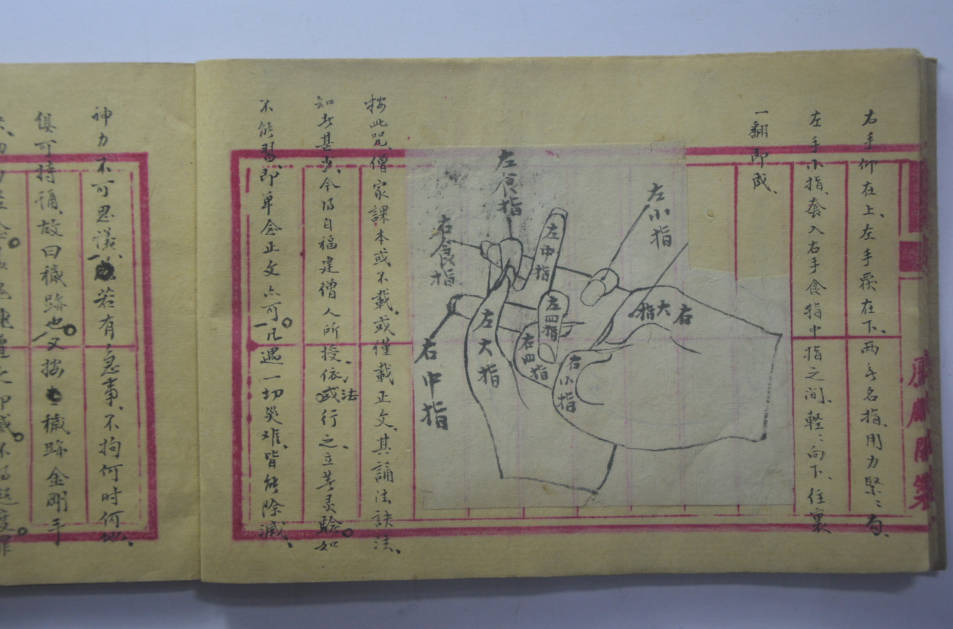 右手仰在上、左手覆在下、兩無名指、用力緊〻勾、
左手小指、套入右手食指中指之間、輕〻向下、往裏
一翻即成、
左小指
左食指
左中指
右食指
右大指
左四指
左大指
右四指
右小指
右中指
按此咒、僧家課本或不載、或僅載正文、其誦法訣法、
知者甚少、今得自福建僧人所授、依法行之、立著灵驗。如
不能習、即单念正文亦可。凡遇一切災难、皆能除滅、
神力不可思議、若有急事、不拘何時何地、
俱可持誦、故曰穢跡也。又按穢跡金剛手